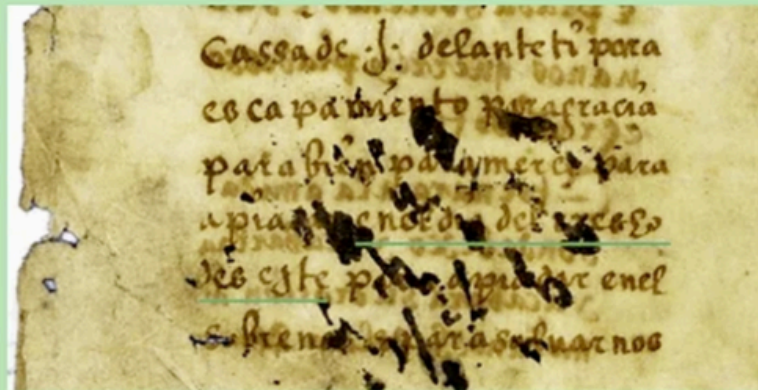 Cassa de .J. delante ti para
escapamiento para gracia
para bien para merce para
dia del
des este para apiadar enel
sobre nos para saluarnos